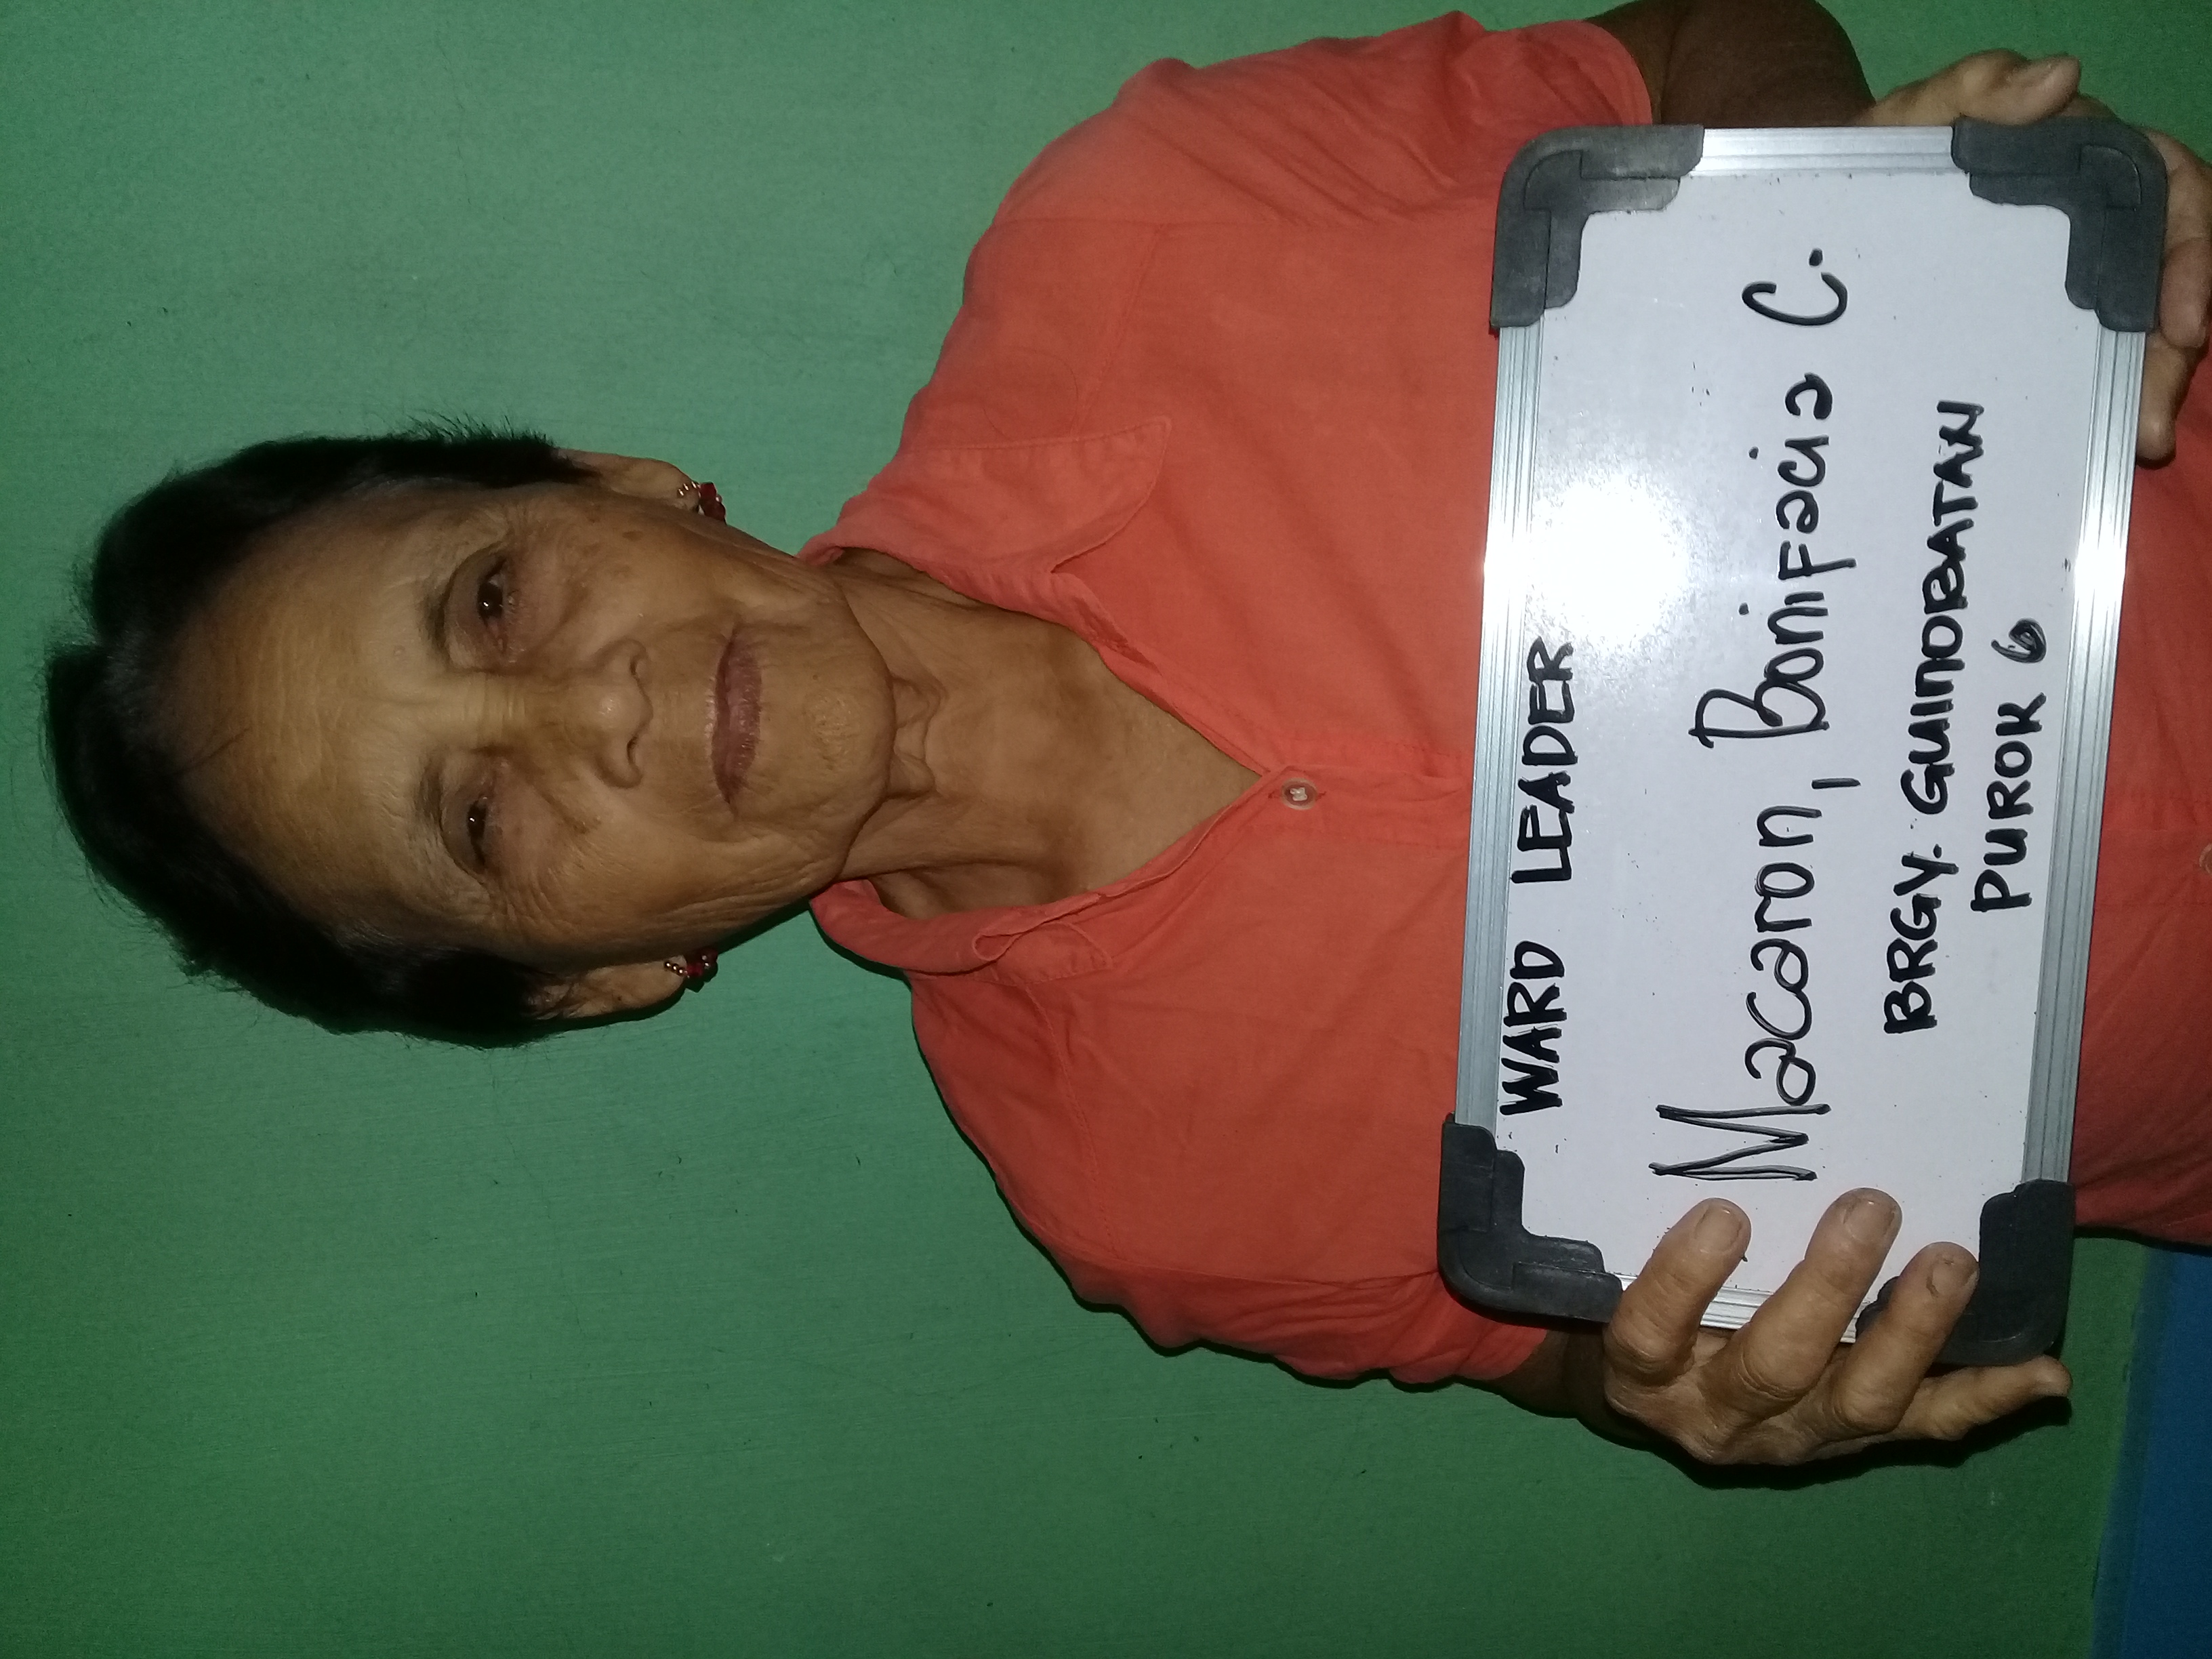 WARD LEADER
Macaron, Bonifacia C.
BRGY. GUINOBATAN
PUROK 6